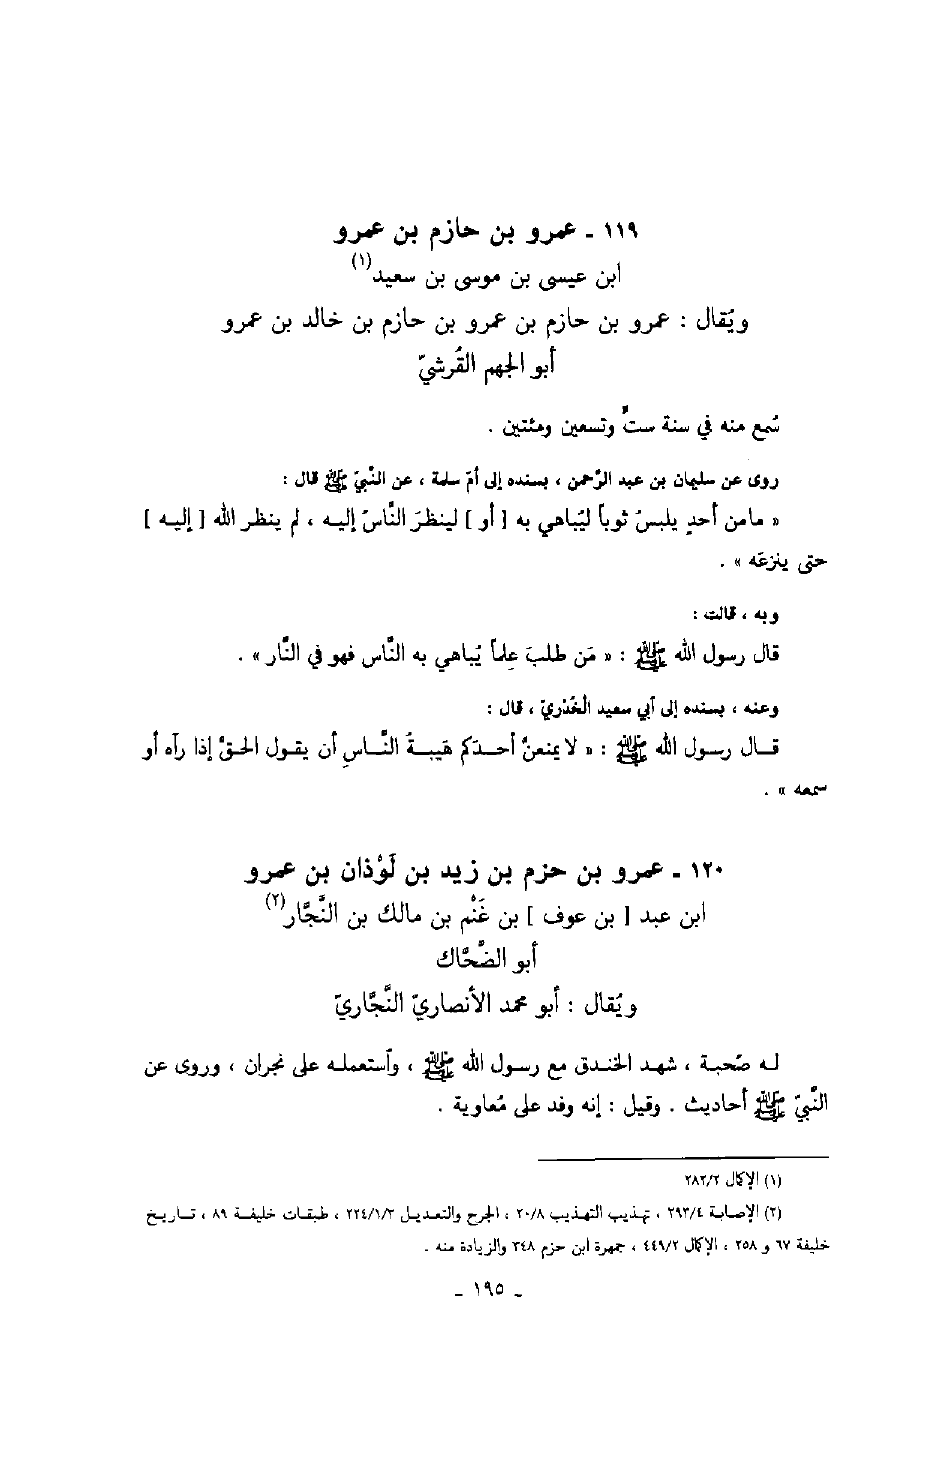 ١١٩ ـ عمرو بن حازم بن عمرو
ابن عيسى بن موسى بن سعيد(١)
ويُقال : عمرو بن حازم بن عمرو بن حازم بن خالد بن عمرو
أبو الجهم القُرشيّ
سُمع منه في سنة ستٍّ وتسعين ومئتين .
روى عن سليمان بن عبد الرَّحمن ، بسنده إلى أمّ سلمة ، عن النَّبيّ ﷺ قال :
« مامن أحدٍ يلبسُ ثوباً ليُباهي به [ أو ] لينظرَ النَّاسُ إليه ، لم ينظر الله [ إليه ]
حتى ينزعَه » .
وبه ، قالت :
قال رسول الله ﷺ : « مَن طلبَ علماً يُباهي به النَّاس فهو في النَّار » .
وعنه ، بسنده إلى أبي سعيد الخُدْريّ ، قال :
قال رسول الله ﷺ : « لا يمنعنَّ أحدَكم هَيبةُ النَّاسِ أن يقول الحقَّ إذا رآه أو
سمعه » .
١٢٠ ـ عمرو بن حزم بن زيد بن لَوْذان بن عمرو
ابن عبد [ بن عوف ] بن غَنْم بن مالك بن النَّجَّار(٢)
أبو الضَّحَّاك
ويُقال : أبو محمد الأنصاريّ النَّجَّاريّ
له صُحبة ، شهد الخندق مع رسول الله ﷺ ، وٱستعمله على نجران ، وروى عن
النَّبيّ ﷺ أحاديث . وقيل : إنه وفد على مُعاوية .
(١) الإكمال ٢٨٢/٢
(٢) الإصابة ٢٩٣/٤ ، تهذيب التهذيب ٢٠/٨ ، الجرح والتعديل ٢٢٤/١/٣ ، طبقات خليفة ٨٩ ، تاريخ
خليفة ٦٧ و ٢٥٨ ، الإكمال ٤٤٩/٢ ، جمهرة ابن حزم ٣٤٨ والزيادة منه .
ـ ١٩٥ ـ